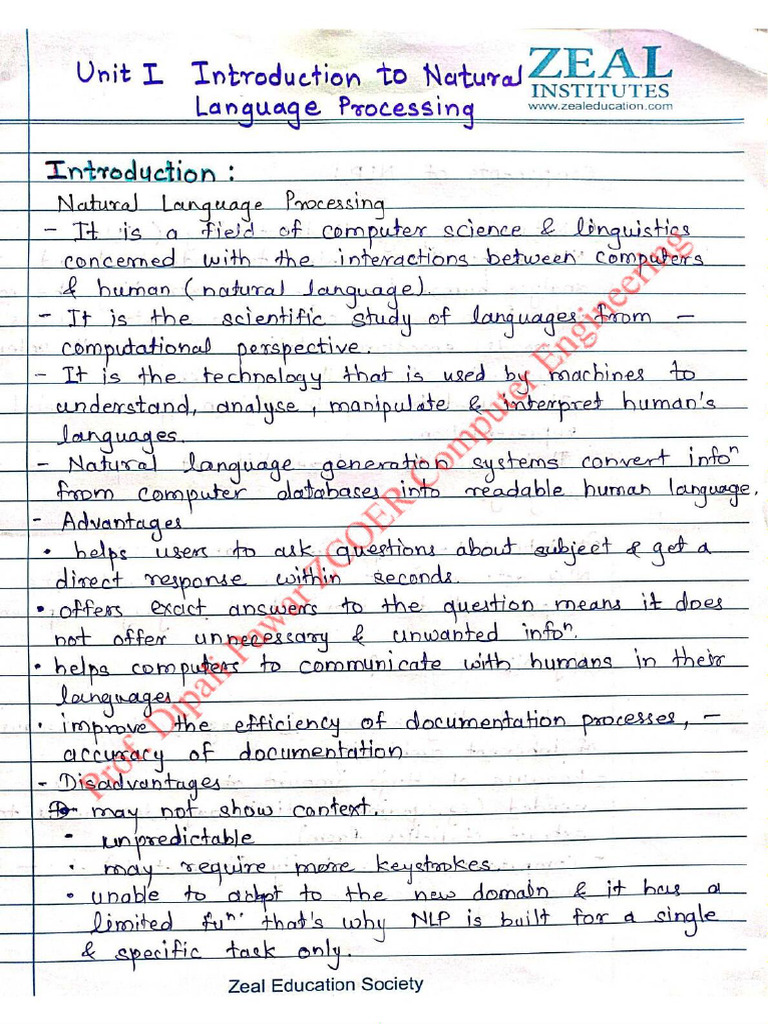 ZEAL
INSTITUTES
www.zealeducation.com
Unit I Introduction to Natural
Language Processing
Introduction :
Natural Language Processing
- It is a field of computer science & linguistics
concerned with the interactions between computers
& human (natural language).
- It is the scientific study of languages from –
computational perspective.
- It is the technology that is used by machines to
understand, analyse, manipulate & interpret human's
languages.
- Natural language generation systems convert infoⁿ
from computer databases into readable human language.
- Advantages
• helps users to ask questions about subject & get a
direct response within seconds.
• offers exact answers to the question means it does
not offer unnecessary & unwanted infoⁿ.
• helps computers to communicate with humans in their
languages
• improve the efficiency of documentation processes, –
accuracy of documentation
- Disadvantages
may not show context.
• unpredictable
• may require more keystrokes.
• unable to adapt to the new domain & it has a
limited fuⁿ. that's why NLP is built for a single
& specific task only.
Prof. Dipali Pawar ZCOER Computer Engineering
Zeal Education Society